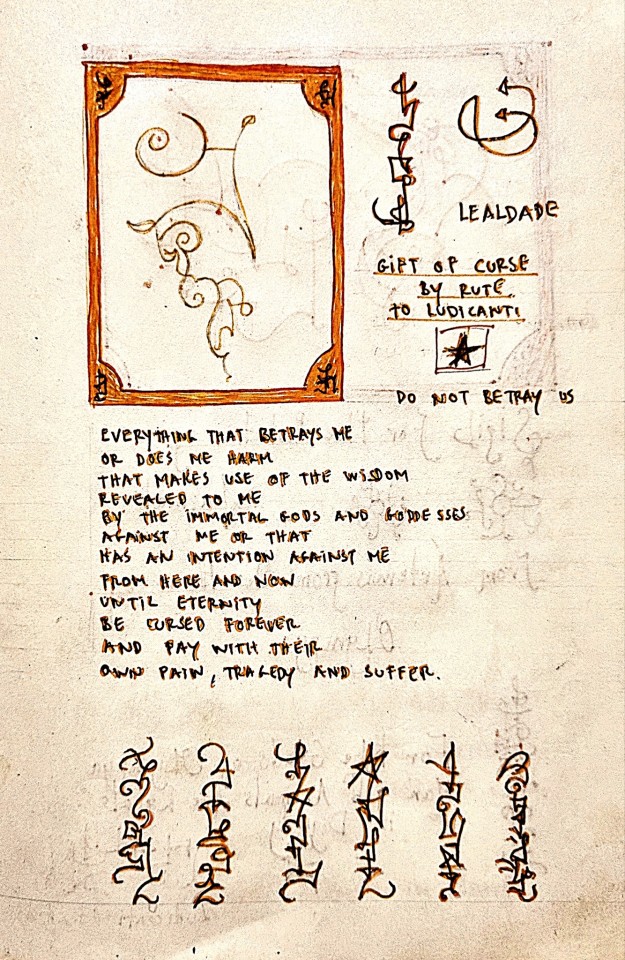 LEALDADE
GIFT OF CURSE
BY RUTE
TO LUDICANTI
DO NOT BETRAY US
EVERYTHING THAT BETRAYS ME
OR DOES ME HARM
THAT MAKES USE OF THE WISDOM
REVEALED TO ME
BY THE IMMORTAL GODS AND GODDESSES
AGAINST ME OR THAT
HAS AN INTENTION AGAINST ME
FROM HERE AND NOW
UNTIL ETERNITY
BE CURSED FOREVER
AND PAY WITH THEIR
OWN PAIN, TRAGEDY AND SUFFER.